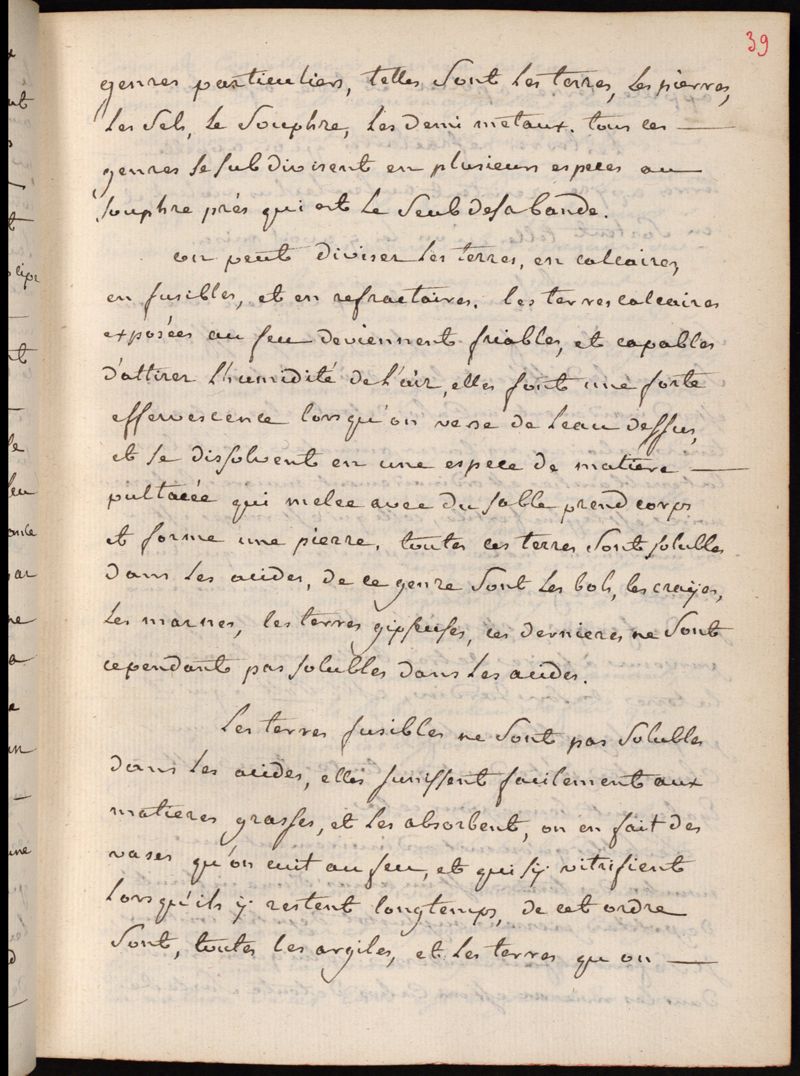 39
genres particuliers, telles sont les terres, les pierres,
les sels, le souphre, les demi métaux. tous ces —
genres se subdivisent en plusieurs especes au
souphre prés qui est le seul de sa bande.
on peut diviser les terres, en calcaires,
en fusibles, et en refractaires. les terres calcaires
exposées au feu deviennent friables, et capables
d'attirer l'humidité de l'air, elles font une forte
effervescence lorsqu'on verse de leau dessus,
et se dissolvent en une espece de matiere —
pultacée qui melée avec du sable prend corps
et forme une pierre. toutes ces terres sont solubles
dans les acides, de ce genre sont les bols, les crayes,
les marnes, les terres gipseuses, ces dernieres ne sont
cependant pas solubles dans les acides.
Les terres fusibles ne sont pas solubles
dans les acides, elles s'unissent facilement aux
matieres grasses, et les absorbent, on en fait des
vases qu'on cuit au feu, et qui s'y vitrifient
lorsqu'ils y restent longtemps, de cet ordre
sont, toutes les argiles, et les terres qu'on —